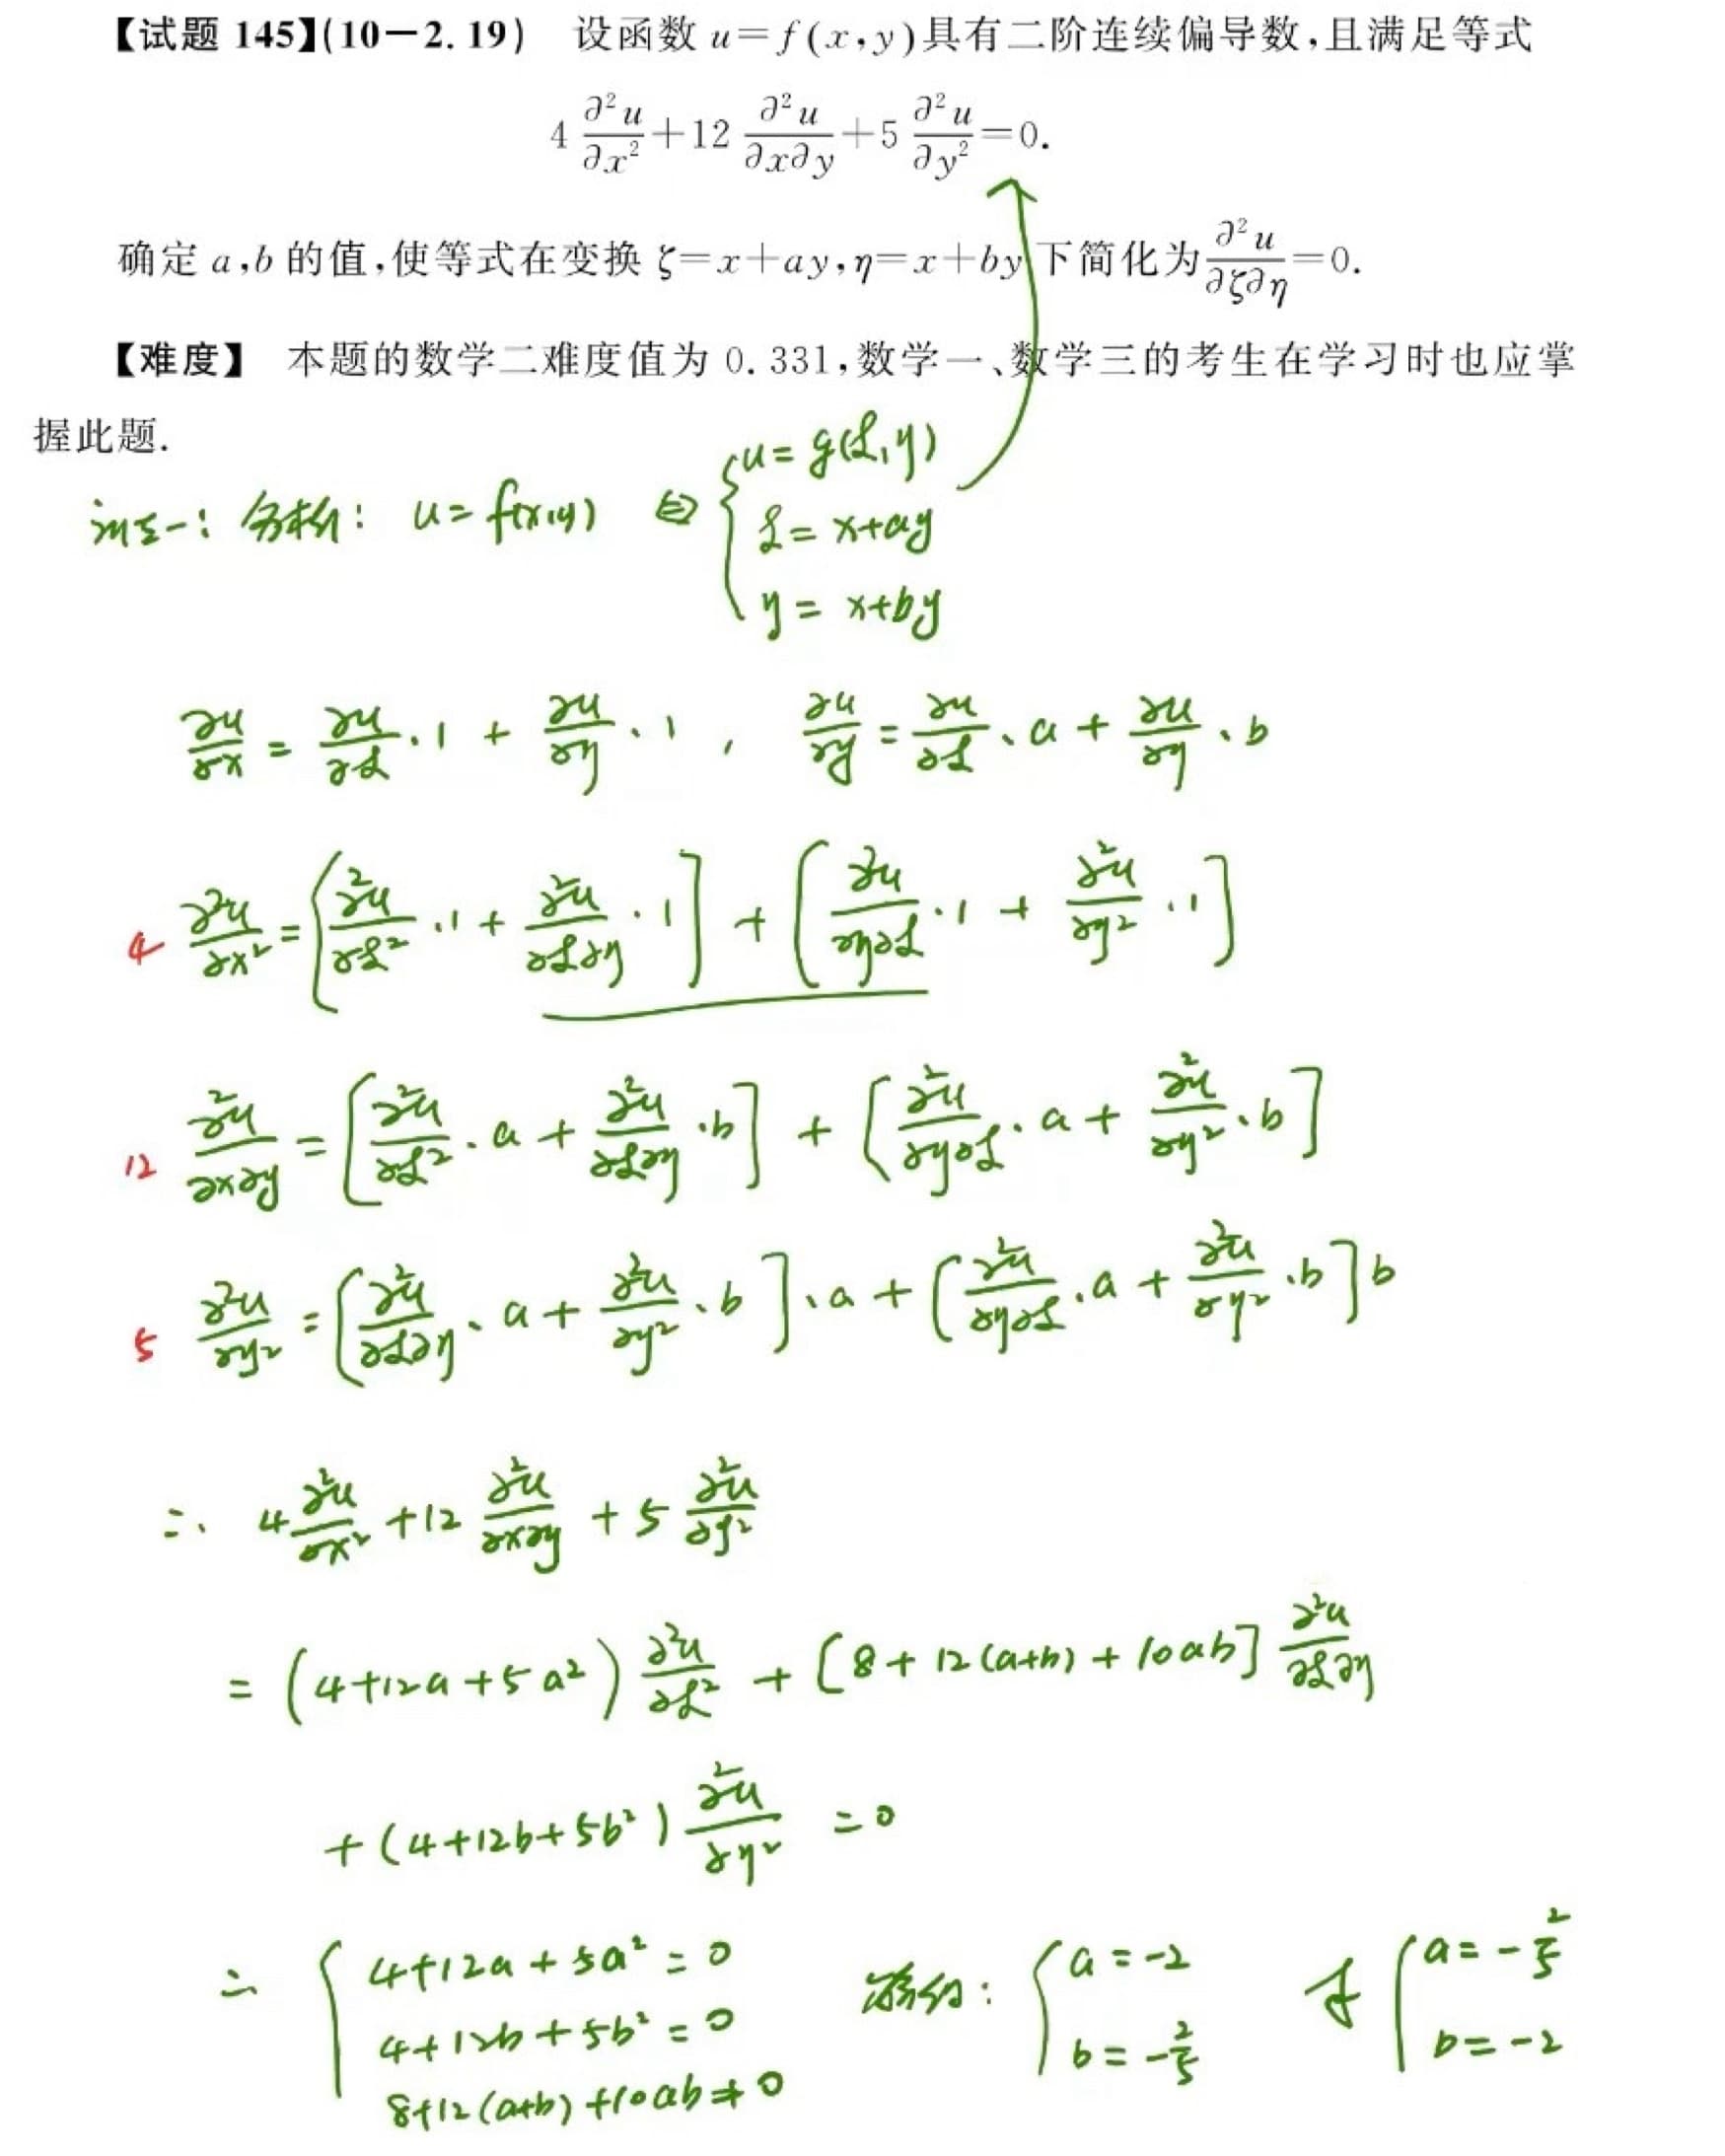 【试题 145】(10－2.19) 设函数 u=f(x,y)具有二阶连续偏导数,且满足等式
4 ∂²u/∂x² + 12 ∂²u/∂x∂y + 5 ∂²u/∂y² = 0.
确定 a,b 的值,使等式在变换 ζ=x+ay,η=x+by 下简化为 ∂²u/∂ζ∂η = 0.
【难度】 本题的数学二难度值为 0.331,数学一、数学三的考生在学习时也应掌
握此题.
法一: 分析: u = f(x,y) ⇔ { u = g(ξ,η)
ξ = x+ay
η = x+by
∂u/∂x = ∂u/∂ξ · 1 + ∂u/∂η · 1 , ∂u/∂y = ∂u/∂ξ · a + ∂u/∂η · b
4 ∂²u/∂x² = [∂²u/∂ξ² · 1 + ∂²u/∂ξ∂η · 1] + [∂²u/∂η∂ξ · 1 + ∂²u/∂η² · 1]
12 ∂²u/∂x∂y = [∂²u/∂ξ² · a + ∂²u/∂ξ∂η · b] + [∂²u/∂η∂ξ · a + ∂²u/∂η² · b]
5 ∂²u/∂y² = [∂²u/∂ξ∂η · a + ∂²u/∂η² · b] · a + [∂²u/∂η∂ξ · a + ∂²u/∂η² · b] b
∴ 4 ∂²u/∂x² + 12 ∂²u/∂x∂y + 5 ∂²u/∂y²
= (4+12a+5a²) ∂²u/∂ξ² + [8+12(a+b)+10ab] ∂²u/∂ξ∂η
+ (4+12b+5b²) ∂²u/∂η² = 0
∴ { 4+12a+5a² = 0
4+12b+5b² = 0
8+12(a+b)+10ab ≠ 0
解得: { a = -2
b = -2/5
或 { a = -2/5
b = -2